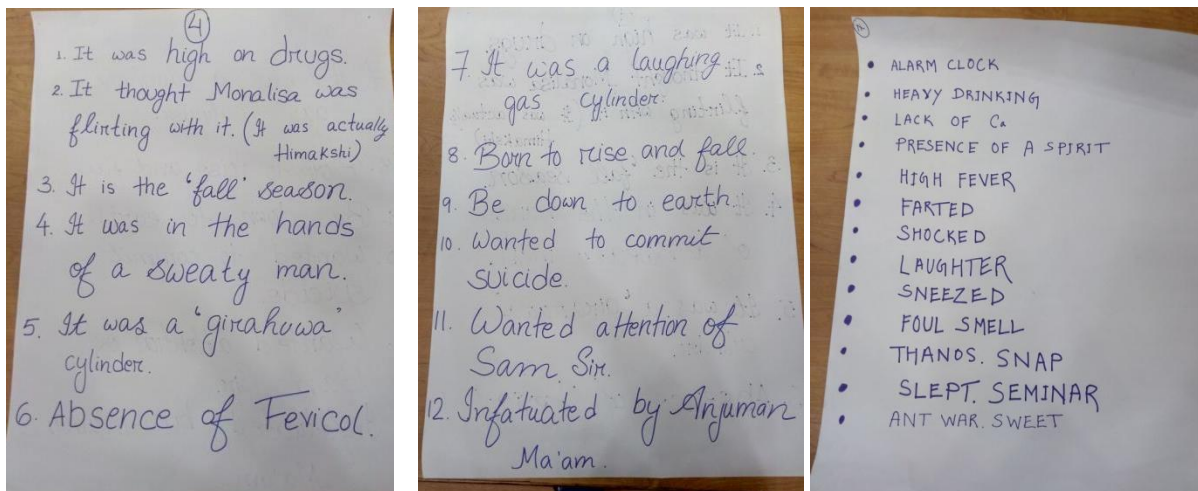 4
1. It was high on drugs.
2. It thought Monalisa was
flirting with it. (It was actually
Himakshi)
3. It is the 'fall' season.
4. It was in the hands
of a sweaty man.
5. It was a 'girahuwa'
cylinder.
6. Absence of Fevicol.
7. It was a laughing
gas cylinder.
8. Born to rise and fall.
9. Be down to earth
10. Wanted to commit
suicide.
11. Wanted attention of
Sam Sir.
12. Infatuated by Anjuman
Ma'am.
• ALARM CLOCK
• HEAVY DRINKING
• LACK OF Ca
• PRESENCE OF A SPIRIT
• HIGH FEVER
• FARTED
• SHOCKED
• LAUGHTER
• SNEEZED
• FOUL SMELL
• THANOS. SNAP
• SLEPT. SEMINAR
• ANT WAR. SWEET